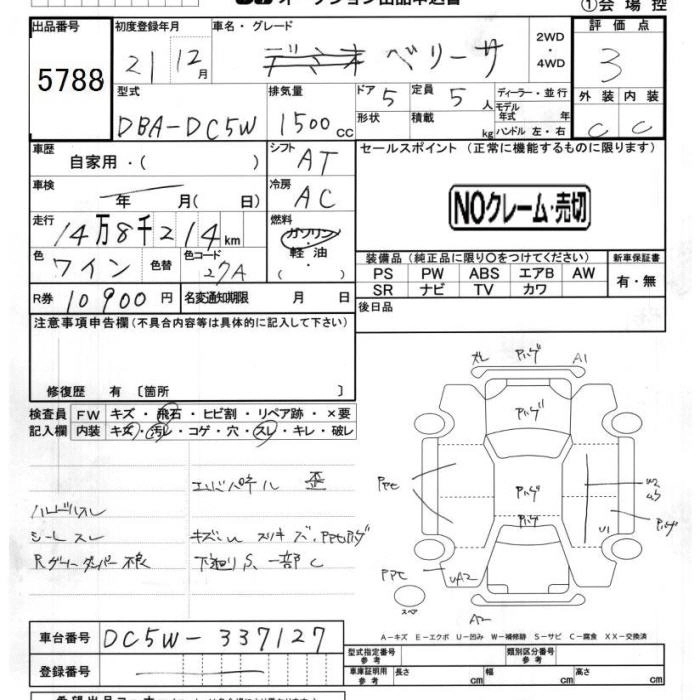 オークション出品申込書
①会場控
出品番号 初度登録年月 車名・グレード 2WD・4WD 評価点
5788 21 12月 デミオ ベリーサ 3
型式 排気量 ドア 5 定員 5人 ディーラー・並行 外装 内装
DBA-DC5W 1500cc 形状 積載 kg モデル年式 年 ハンドル 左・右 C C
車歴 自家用・( ) シフト AT セールスポイント(正常に機能するものに限ります)
車検 年 月(日) 冷房 AC
NOクレーム・売切
走行 14万8千214km 燃料 ガソリン・軽油・( )
色 ワイン 色替 色コード 27A
装備品(純正品に限り〇をつけてください) 新車保証書
PS PW ABS エアB AW 有・無
SR ナビ TV カワ
R券 10900円 名変通知期限 月 日 後日品
注意事項申告欄(不具合内容等は具体的に記入して下さい)
修復歴 有 〔箇所 〕
検査員 FW キズ・飛石・ヒビ割・リペア跡・×要
記入欄 内装 キズ・汚レ・コゲ・穴・スレ・キレ・破レ
エンドパネル 歪
ハンドルスレ
シートスレ
下廻りS、一部C
A1
U1
A2
スペア
A-キズ E-エクボ U-凹み W-補修跡 S-サビ C-腐食 XX-交換済
車台番号 DC5W-337127
型式指定番号 参考 類別区分番号 参考
登録番号
車庫証明用 参考 長さ cm 幅 cm 高さ cm